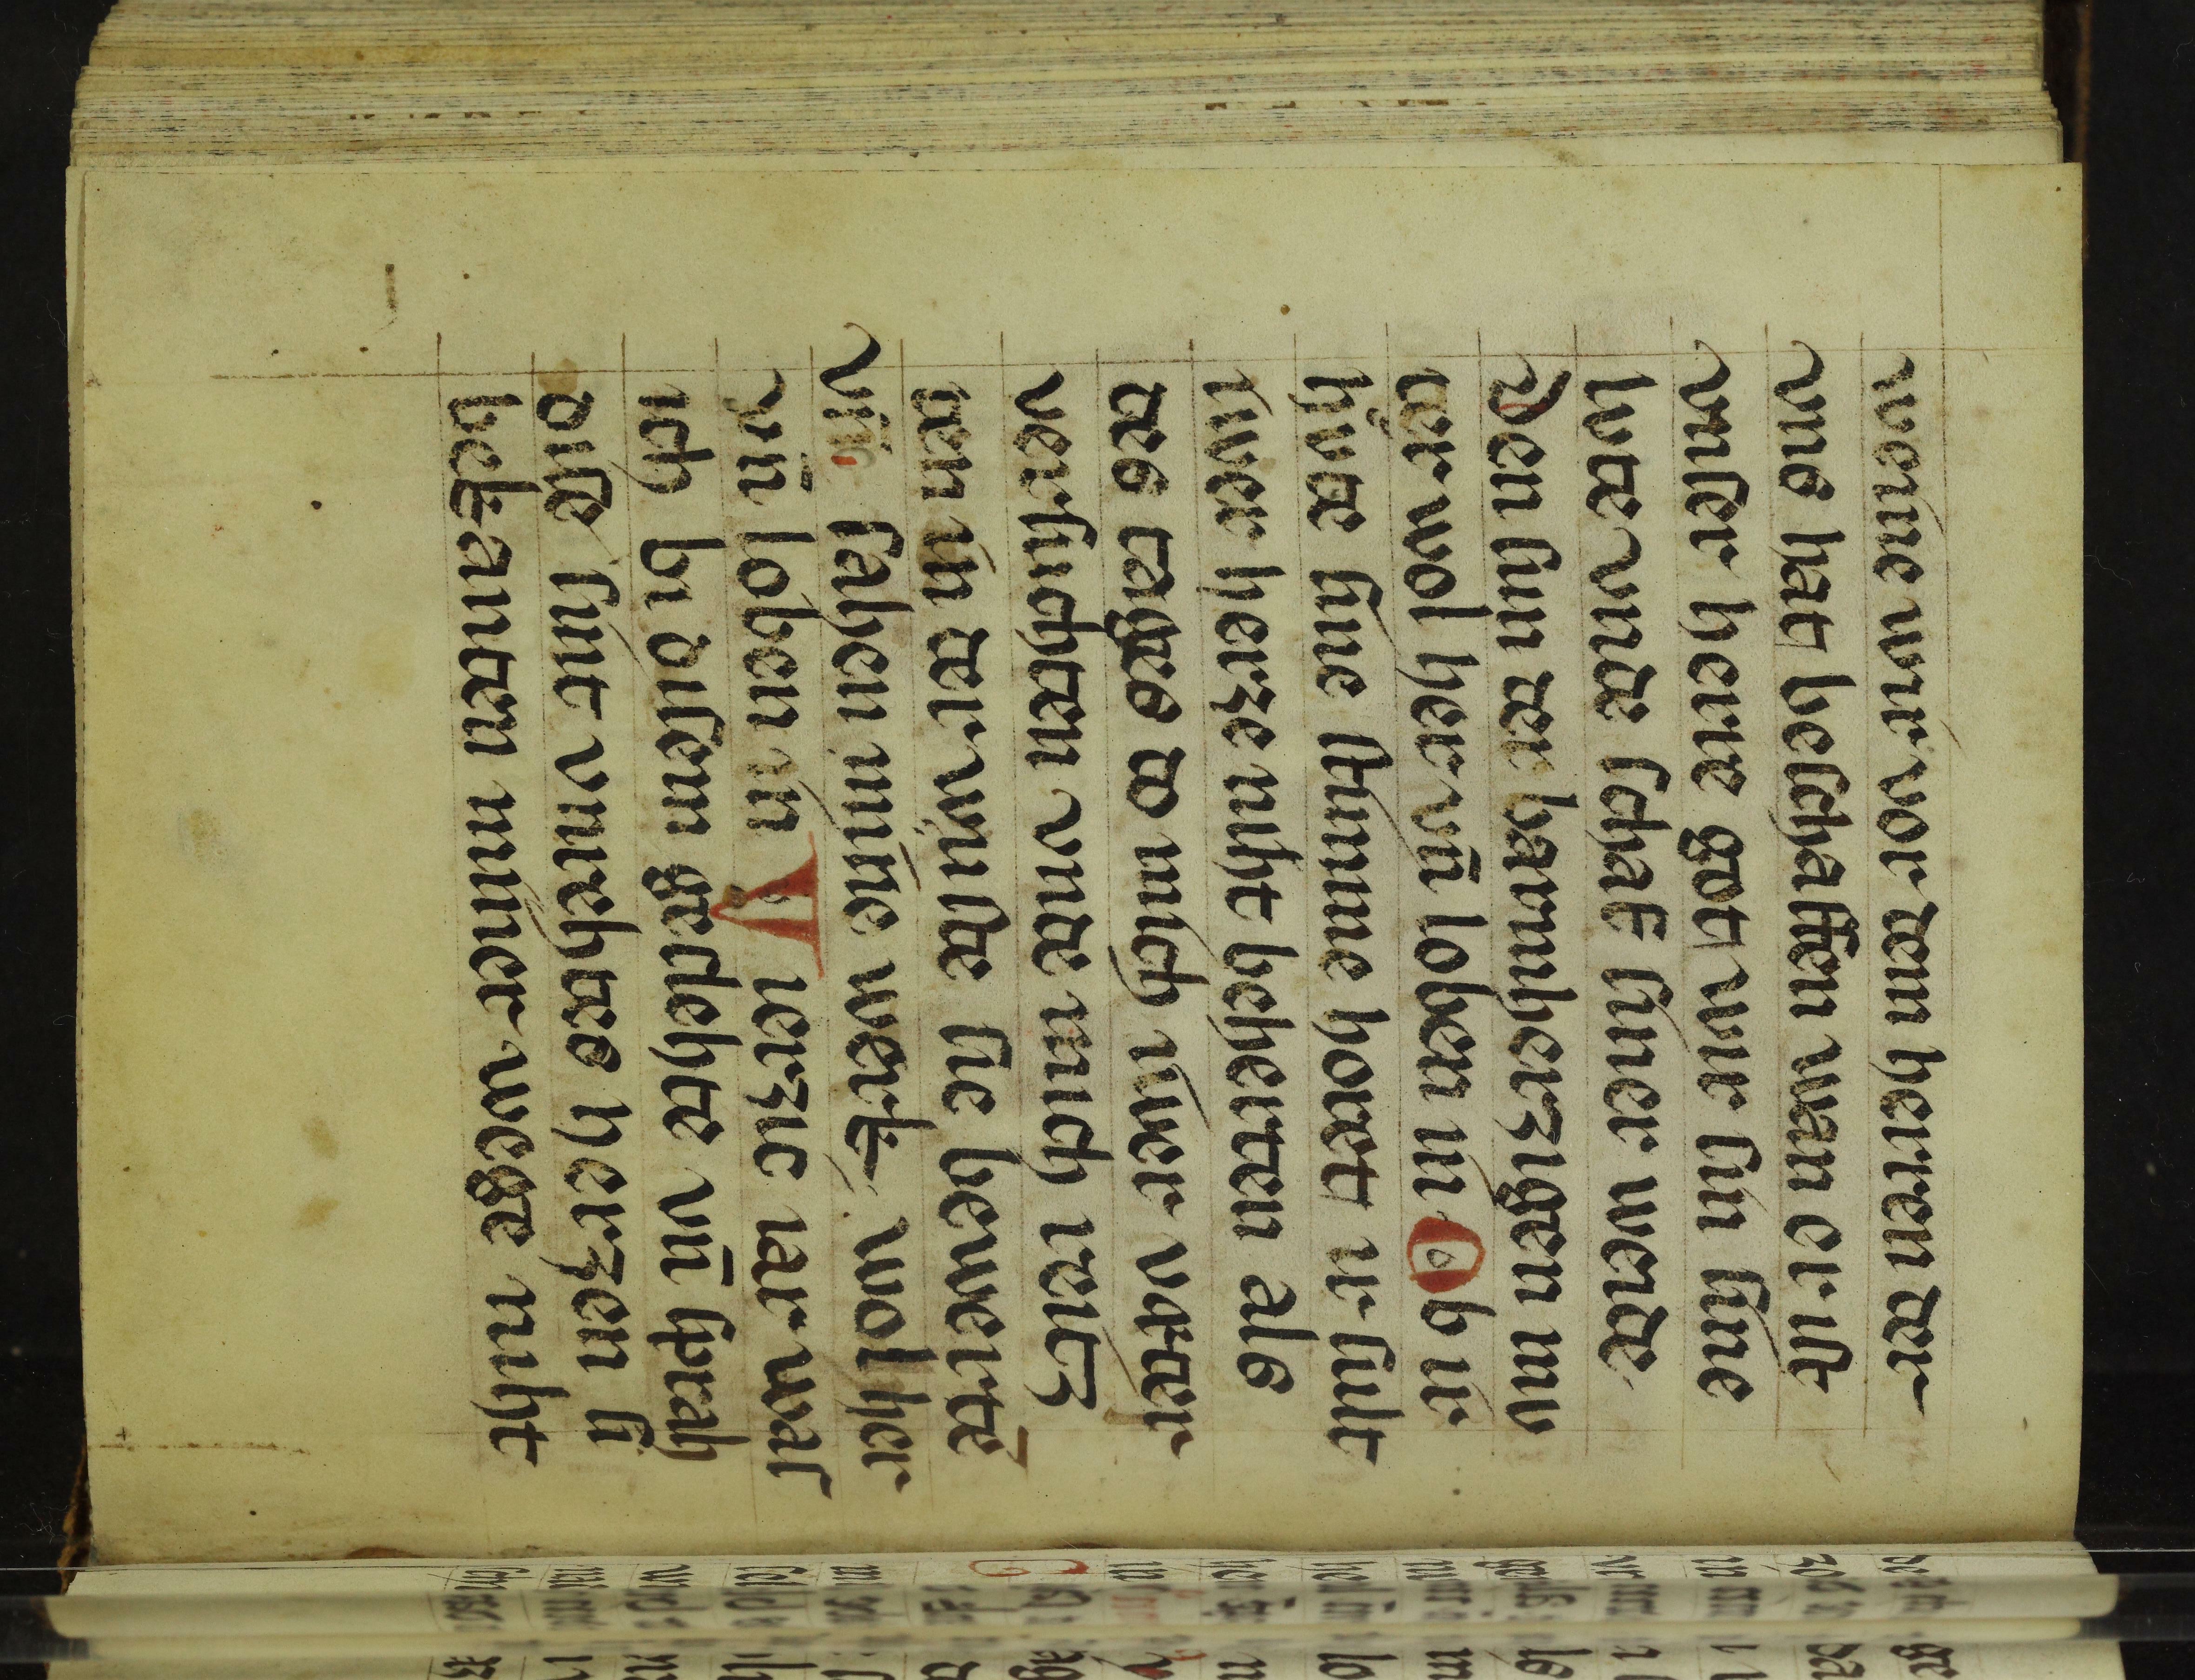 weine wir vor dem herren der
vns hat beschaffen wan er ist
vnser herre got wir sin sine
lvte vnde schaf siner weide
Den sun der barmherzigen mv
ter wol her vñ loben in Ob ir
hvte sine stimme horet ir sult
uwer herze niht beherten als
des tages do mich uwer vater
versuchten vnde mich reitz
ten in der wuste sie bewerte
vnd sahen mine werk wol her
vñ loben in Vierzic iar was
ich bi disem geslehte vñ sprach
dise sint vnrehtes herzen si
bekanten miner wege niht